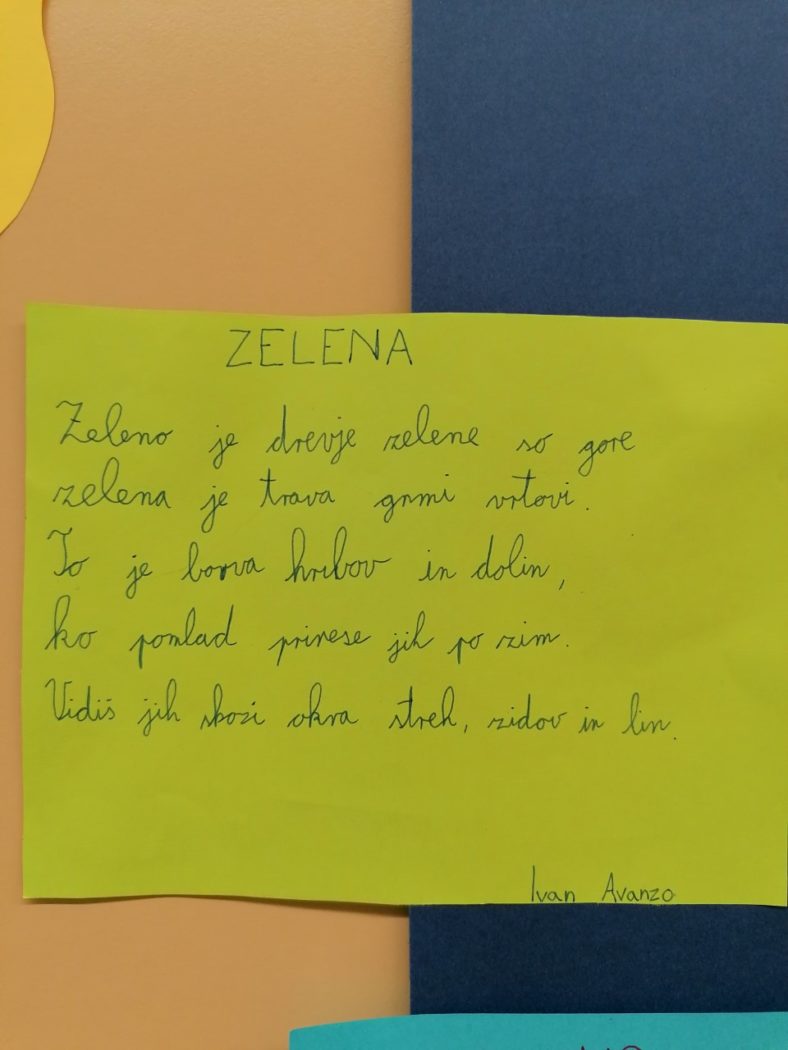 ZELENA
Zeleno je drevje zelene so gore
zelena je trava grmi vrtovi.
To je barva hribov in dolin,
ko pomlad prinese jih po zim.
Vidiš jih skozi okna streh, zidov in lin.
Ivan Avanzo